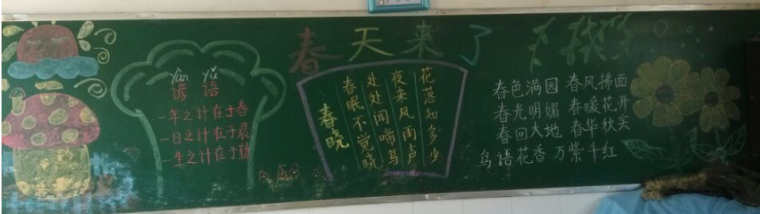 春天来了
谚语
一年之计在于春
一日之计在于晨
一生之计在于勤
春晓
春眠不觉晓
处处闻啼鸟
夜来风雨声
花落知多少
春色满园 春风拂面
春光明媚 春暖花开
春回大地 春华秋实
鸟语花香 万紫千红